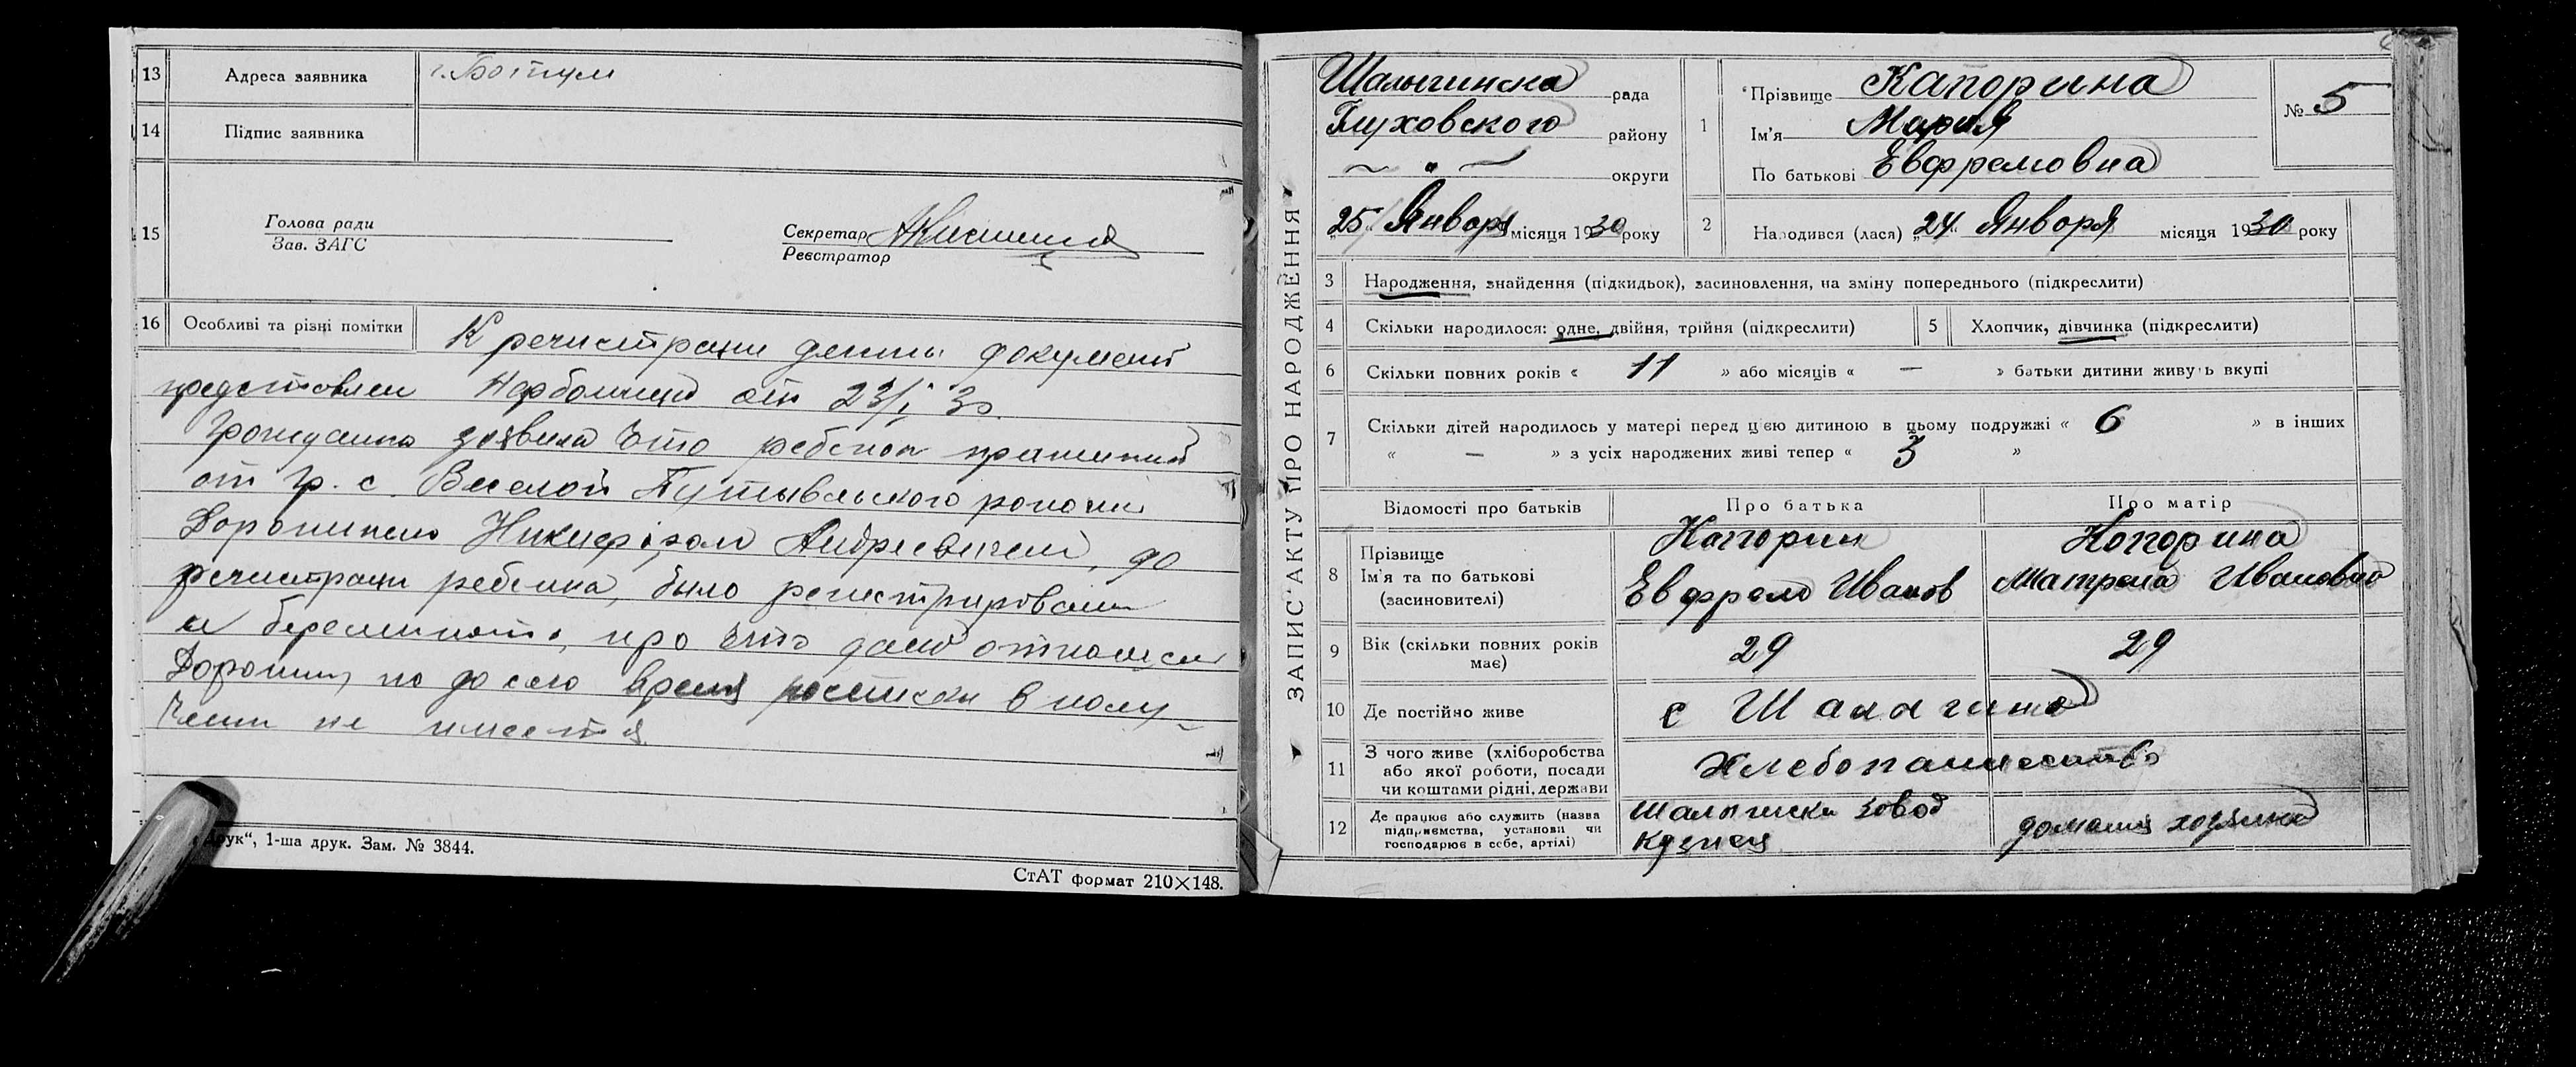 13 Адреса заявника г. Батум
14 Підпис заявника
15 Голова ради
Зав. ЗАГС
Секретар
Реєстратор
16 Особливі та різні помітки К регистрации документ
представлен Нарбольницей от 23/I 30.
Гражданка заявила что ребенок прижитый
от гр. с. Веселой Путывльского района
Дорошенко Никифором Андреевичем, до
регистрации ребенка, было регистрировании
и беременность, про что дано
но до сего время росписки в полу-
чении не имеется
Друк“, 1-ша друк. Зам. № 3844.
СтАТ формат 210×148.
ЗАПИС АКТУ ПРО НАРОДЖЕННЯ
Шалыгинска рада
Глуховского района району
~ " ~ округи
„25“ Января місяця 1930 року
1 Прізвище Капорина
Ім'я Мария
По батькові Евфремовна
№ 5
2 Народився (лася) „24“ Января місяця 1930 року
3 Народження, знайдення (підкидьок), засиновлення, на зміну попереднього (підкреслити)
4 Скільки народилося: одне, двійня, трійня (підкреслити) 5 Хлопчик, дівчинка (підкреслити)
6 Скільки повних років « 11 » або місяців « — » батьки дитини живуть вкупі
7 Скільки дітей народилось у матері перед цією дитиною в цьому подружжі « 6 » в інших
« — » з усіх народжених живі тепер « 3 »
Відомості про батьків Про батька Про матір
8 Прізвище Капорин Капорина
Ім'я та по батькові Евфрем Иванов Матрена Ивановна
(засиновителі)
9 Вік (скільки повних років має) 29 29
10 Де постійно живе с Шалыгино
11 З чого живе (хліборобства
або якої роботи, посади Хлебопашество
чи коштами рідні, держави
12 Де працює або служить (назва Шалыгиски завод
підприємства, установи чи домашня хозяйка
господарює в себе, артілі) Кузнец